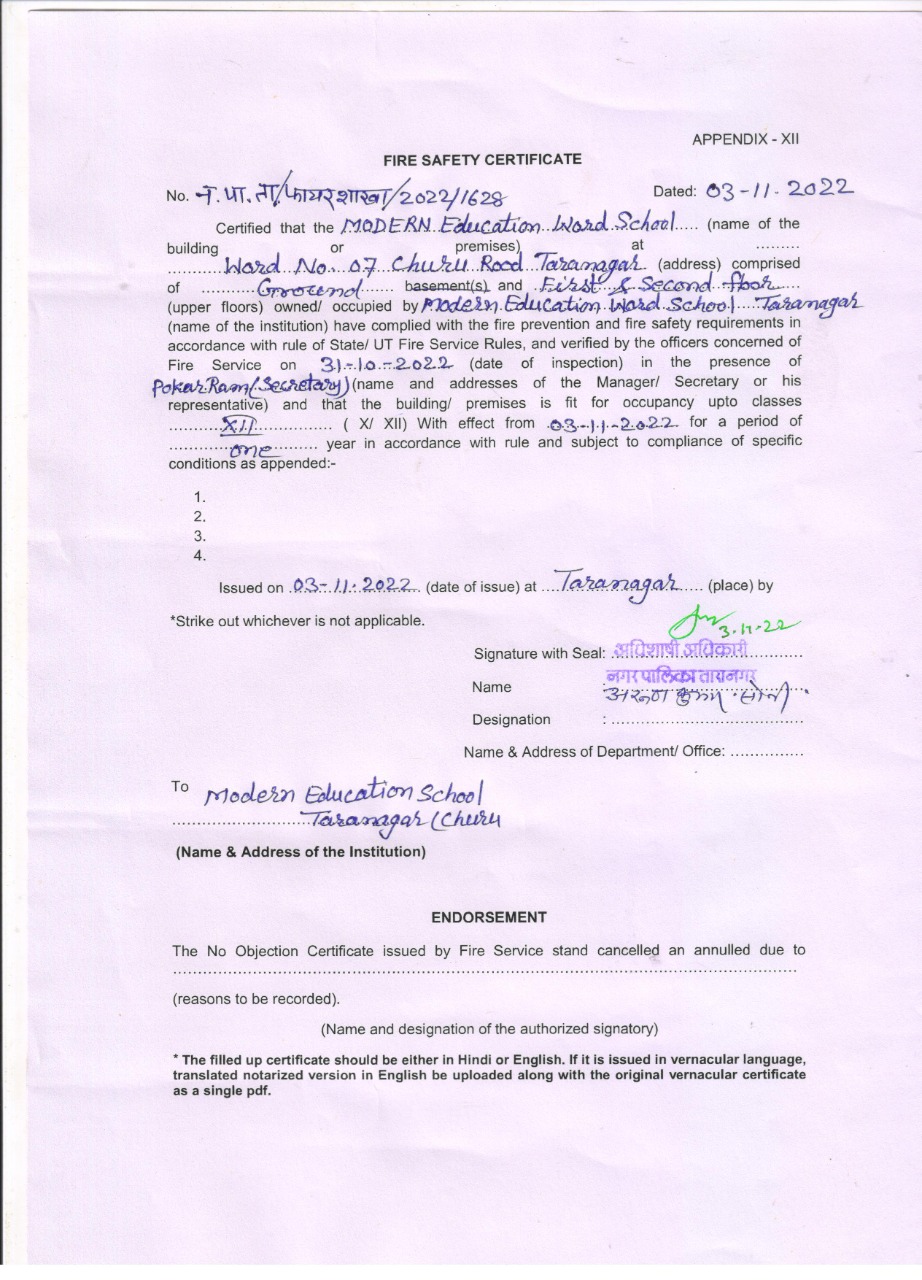 APPENDIX - XII
FIRE SAFETY CERTIFICATE
No. न.पा.ता/फायर शाखा/2022/1628 Dated: 03-11-2022
Certified that the MODERN Education Word School ..... (name of the
building or premises) at .........
............ Word No. 07 Churu Rood Taranagar (address) comprised
of ........... Ground ...... basement(s) and First & Second floor ....
(upper floors) owned/ occupied by Modern Education Word School .... Taranagar
(name of the institution) have complied with the fire prevention and fire safety requirements in
accordance with rule of State/ UT Fire Service Rules, and verified by the officers concerned of
Fire Service on 31-10-2022 (date of inspection) in the presence of
Pokar Ram/(Secretary) (name and addresses of the Manager/ Secretary or his
representative) and that the building/ premises is fit for occupancy upto classes
........... XII .............. ( X/ XII) With effect from 03-11-2022 for a period of
............. one .......... year in accordance with rule and subject to compliance of specific
conditions as appended:-
1.
2.
3.
4.
Issued on 03-11-2022 (date of issue) at .... Taranagar ..... (place) by
*Strike out whichever is not applicable.
3-11-22
Signature with Seal: अधिशाषी अधिकारी
नगर पालिका तारानगर
Name : अरुण कुमार सोनी
Designation : ......................................
Name & Address of Department/ Office: ...............
To Modern Education School
........................... Taranagar (Churu
(Name & Address of the Institution)
ENDORSEMENT
The No Objection Certificate issued by Fire Service stand cancelled an annulled due to
.............................................................................................................................
(reasons to be recorded).
(Name and designation of the authorized signatory)
* The filled up certificate should be either in Hindi or English. If it is issued in vernacular language,
translated notarized version in English be uploaded along with the original vernacular certificate
as a single pdf.